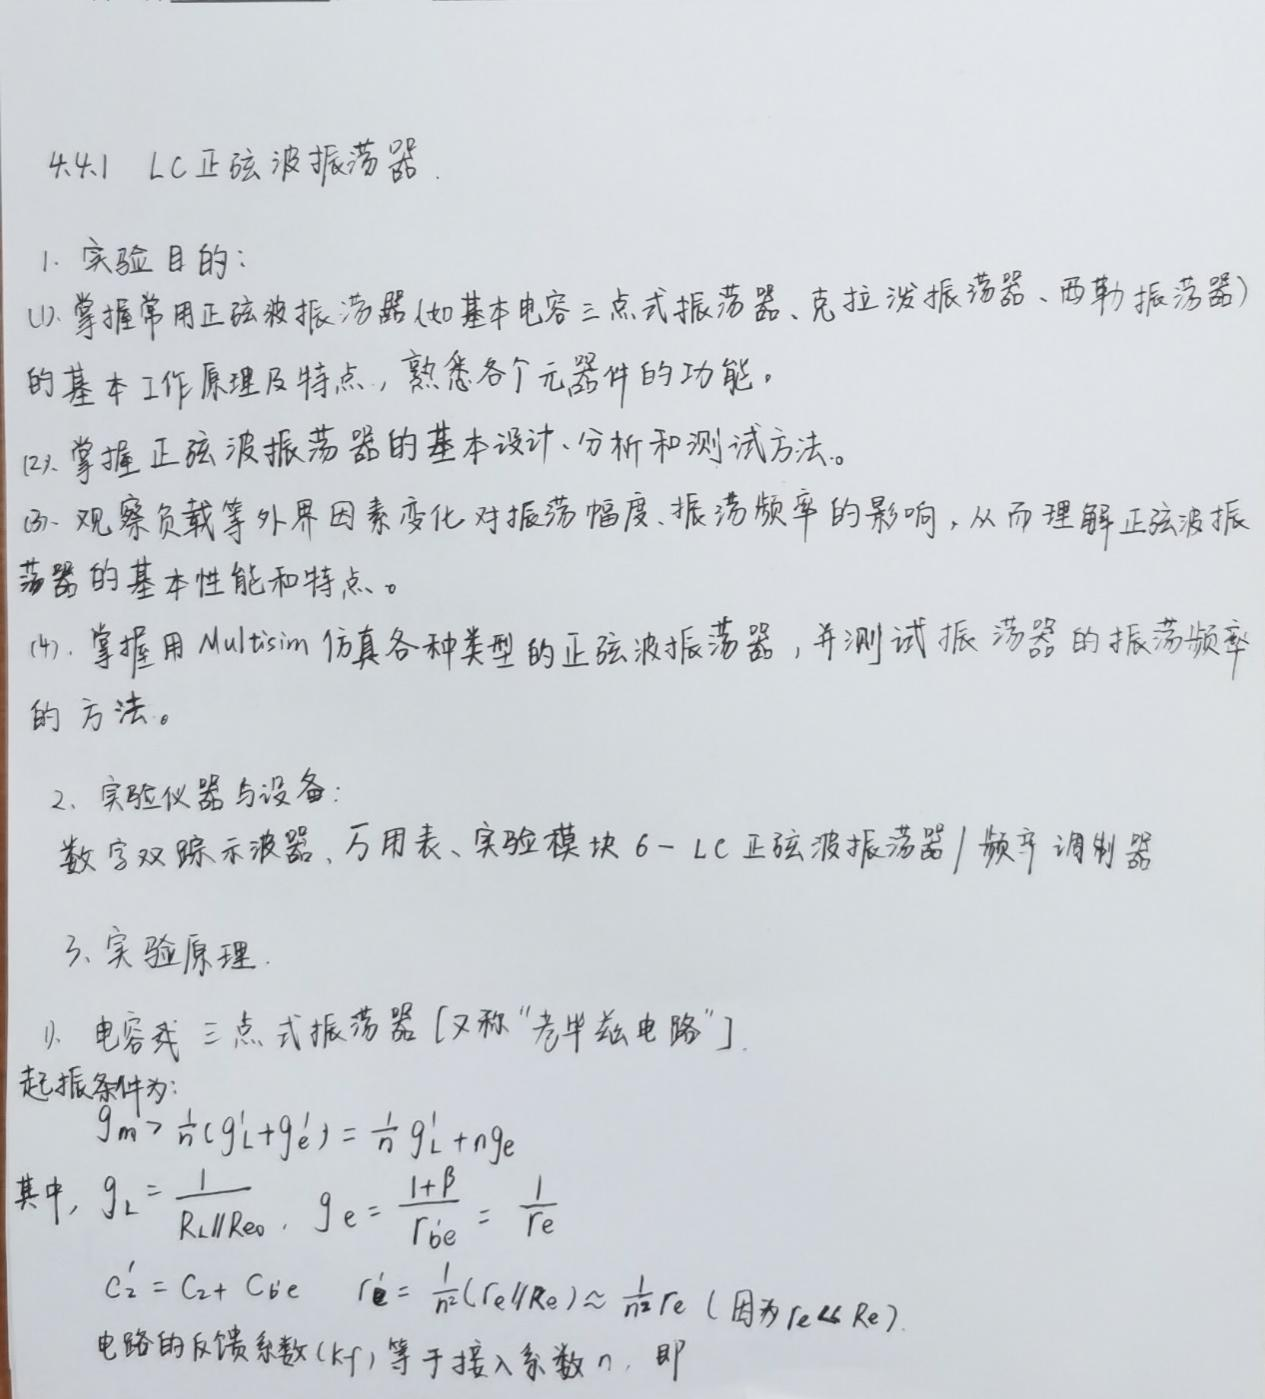 4.4.1 LC正弦波振荡器.
1. 实验目的:
(1). 掌握常用正弦波振荡器(如基本电容三点式振荡器、克拉泼振荡器、西勒振荡器)
的基本工作原理及特点,熟悉各个元器件的功能。
(2). 掌握正弦波振荡器的基本设计、分析和测试方法。
(3). 观察负载等外界因素变化对振荡幅度、振荡频率的影响,从而理解正弦波振
荡器的基本性能和特点。
(4). 掌握用Multisim仿真各种类型的正弦波振荡器,并测试振荡器的振荡频率
的方法。
2、实验仪器与设备:
数字双踪示波器、万用表、实验模块6-LC正弦波振荡器/频率调制器
3、实验原理.
1). 电容 三点式振荡器[又称“考毕兹电路”].
起振条件为:
gm > 1/n (g'L+g'e) = 1/n g'L + nge
其中, gL = 1/(RL//Reo) , ge = (1+β)/rb'e = 1/re
C2' = C2 + Cb'e re' = 1/n² (re//Re) ≈ 1/n² re (因为re<<Re).
电路的反馈系数(kf)等于接入系数n,即